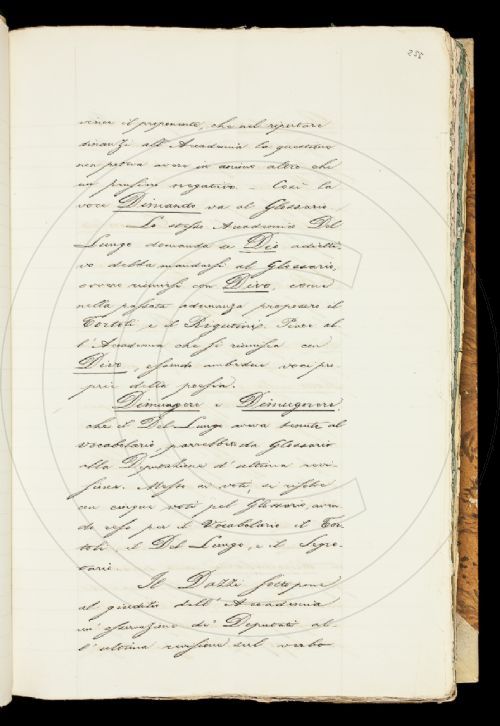 255
vince il proponente, che nel riportare
dinanzi all' Accademia la questione
non poteva avere in animo altro che
un partito negativo. Così la
voce Dimando va al Glossario.
Lo stesso Accademico Del
Lungo domanda se Dio adietti-
vo debba mandarsi al Glossario,
ovvero riunirsi con Divo, come
nella passata adunanza proposero il
Tortoli e il Rigutini. Piace al-
l' Accademia che si riunisca con
Divo, essendo ambedue voci pro-
prie della poesia.
Dimungere e Dimugnere,
che il Del Lungo aveva tenute al
Vocabolario, parrebbero da Glossario
alla Deputazione d' ultima revi-
sione. Messe a voti, si risolve
con cinque voti pel Glossario, aven-
do reso per il Vocabolario il Tor-
toli, il Del Lungo, e il Segre-
tario.
Il Dazzi sottopone
al giudizio dell' Accademia
un' osservazione de' Deputati al-
l' ultima revisione sul verbo